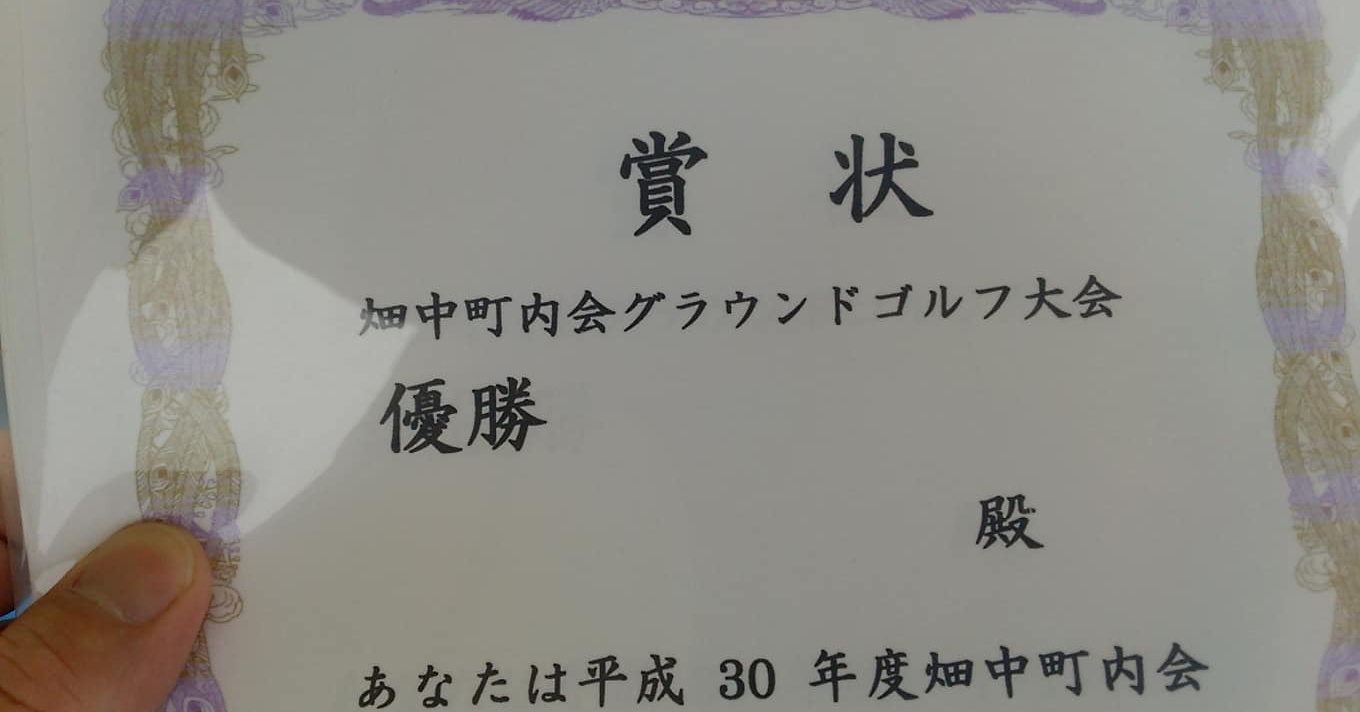 賞状
畑中町内会グラウンドゴルフ大会
優勝
殿
あなたは平成 30 年度畑中町内会